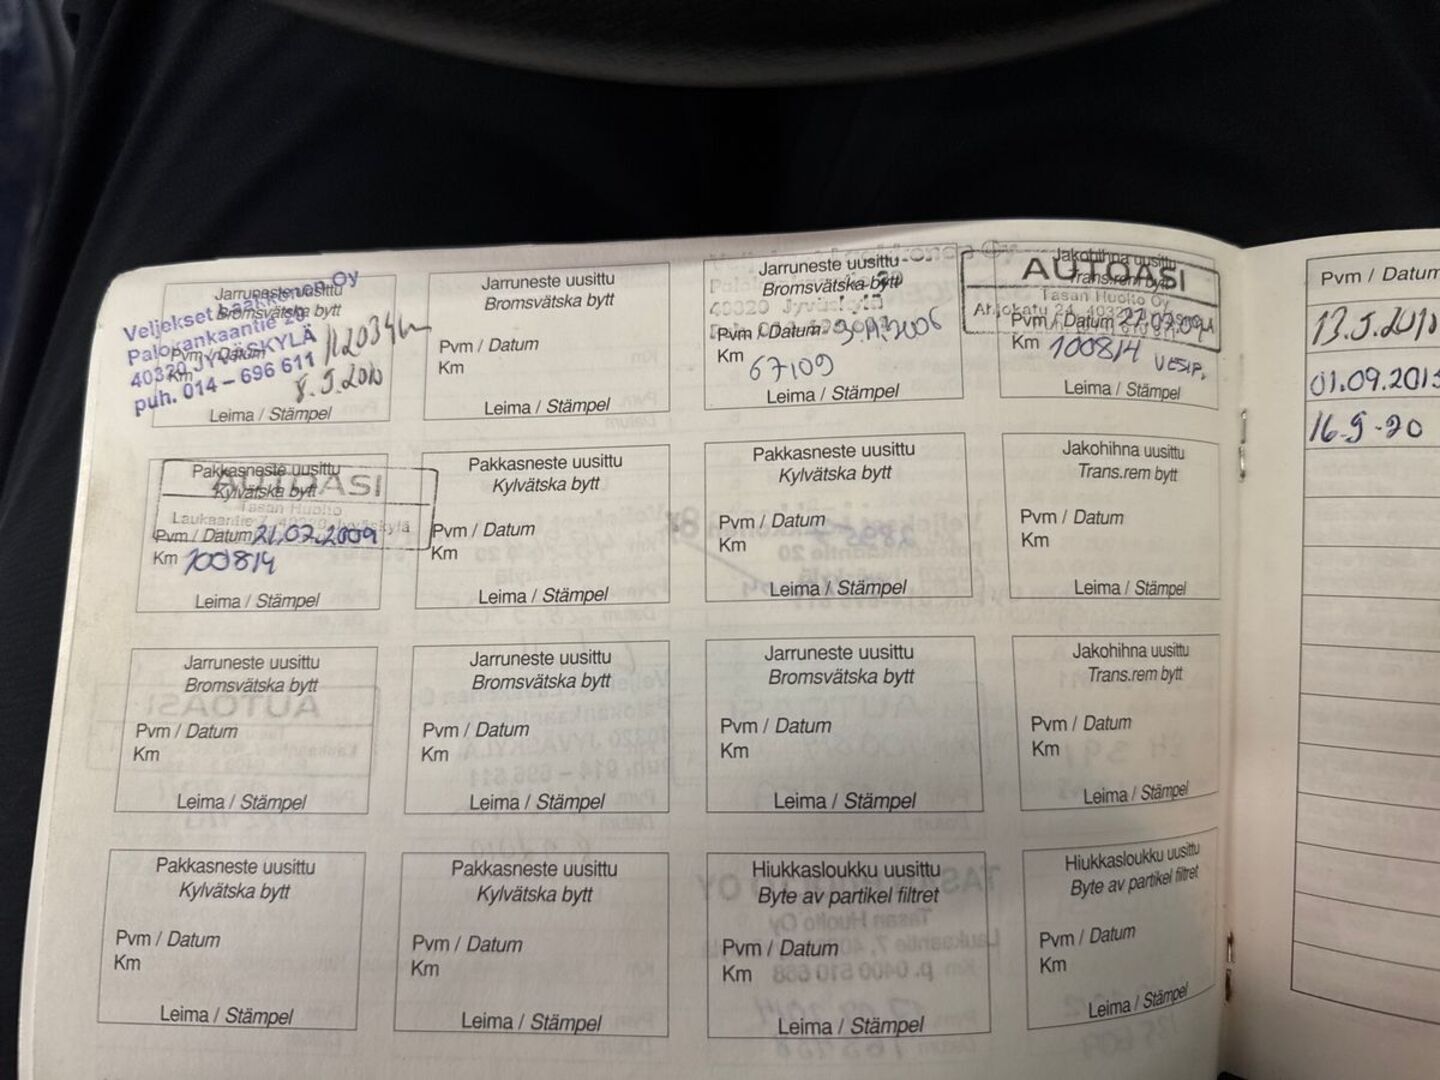 Jarruneste uusittu
Bromsvätska bytt
Pvm / Datum
Km
Leima / Stämpel
Veljekset Laakkonen Oy
Palokankaantie 20
40320 JYVÄSKYLÄ
puh. 014 – 696 611
8.5.2010
Jarruneste uusittu
Bromsvätska bytt
Pvm / Datum
Km
Leima / Stämpel
Jarruneste uusittu
Bromsvätska bytt
40320 Jyväskylä
Pvm / Datum
Km
67109
Leima / Stämpel
Jakohihna uusittu
Trans.rem bytt
AUTOASI
Tasan Huolto Oy
Pvm / Datum
Km 100814 VESIP.
Leima / Stämpel
Pakkasneste uusittu
Kylvätska bytt
AUTOASI
Tasan Huolto
Pvm / Datum 21.07.2009
Km 100814
Leima / Stämpel
Pakkasneste uusittu
Kylvätska bytt
Pvm / Datum
Km
Leima / Stämpel
Pakkasneste uusittu
Kylvätska bytt
Pvm / Datum
Km
Leima / Stämpel
Jakohihna uusittu
Trans.rem bytt
Pvm / Datum
Km
Leima / Stämpel
Jarruneste uusittu
Bromsvätska bytt
Pvm / Datum
Km
Leima / Stämpel
Jarruneste uusittu
Bromsvätska bytt
Pvm / Datum
Km
Leima / Stämpel
Jarruneste uusittu
Bromsvätska bytt
Pvm / Datum
Km
Leima / Stämpel
Jakohihna uusittu
Trans.rem bytt
Pvm / Datum
Km
Leima / Stämpel
Pakkasneste uusittu
Kylvätska bytt
Pvm / Datum
Km
Leima / Stämpel
Pakkasneste uusittu
Kylvätska bytt
Pvm / Datum
Km
Leima / Stämpel
Hiukkasloukku uusittu
Byte av partikel filtret
Pvm / Datum
Km
Leima / Stämpel
Hiukkasloukku uusittu
Byte av partikel filtret
Pvm / Datum
Km
Leima / Stämpel
Pvm / Datum
13.5.2010
01.09.2015
16.9.20